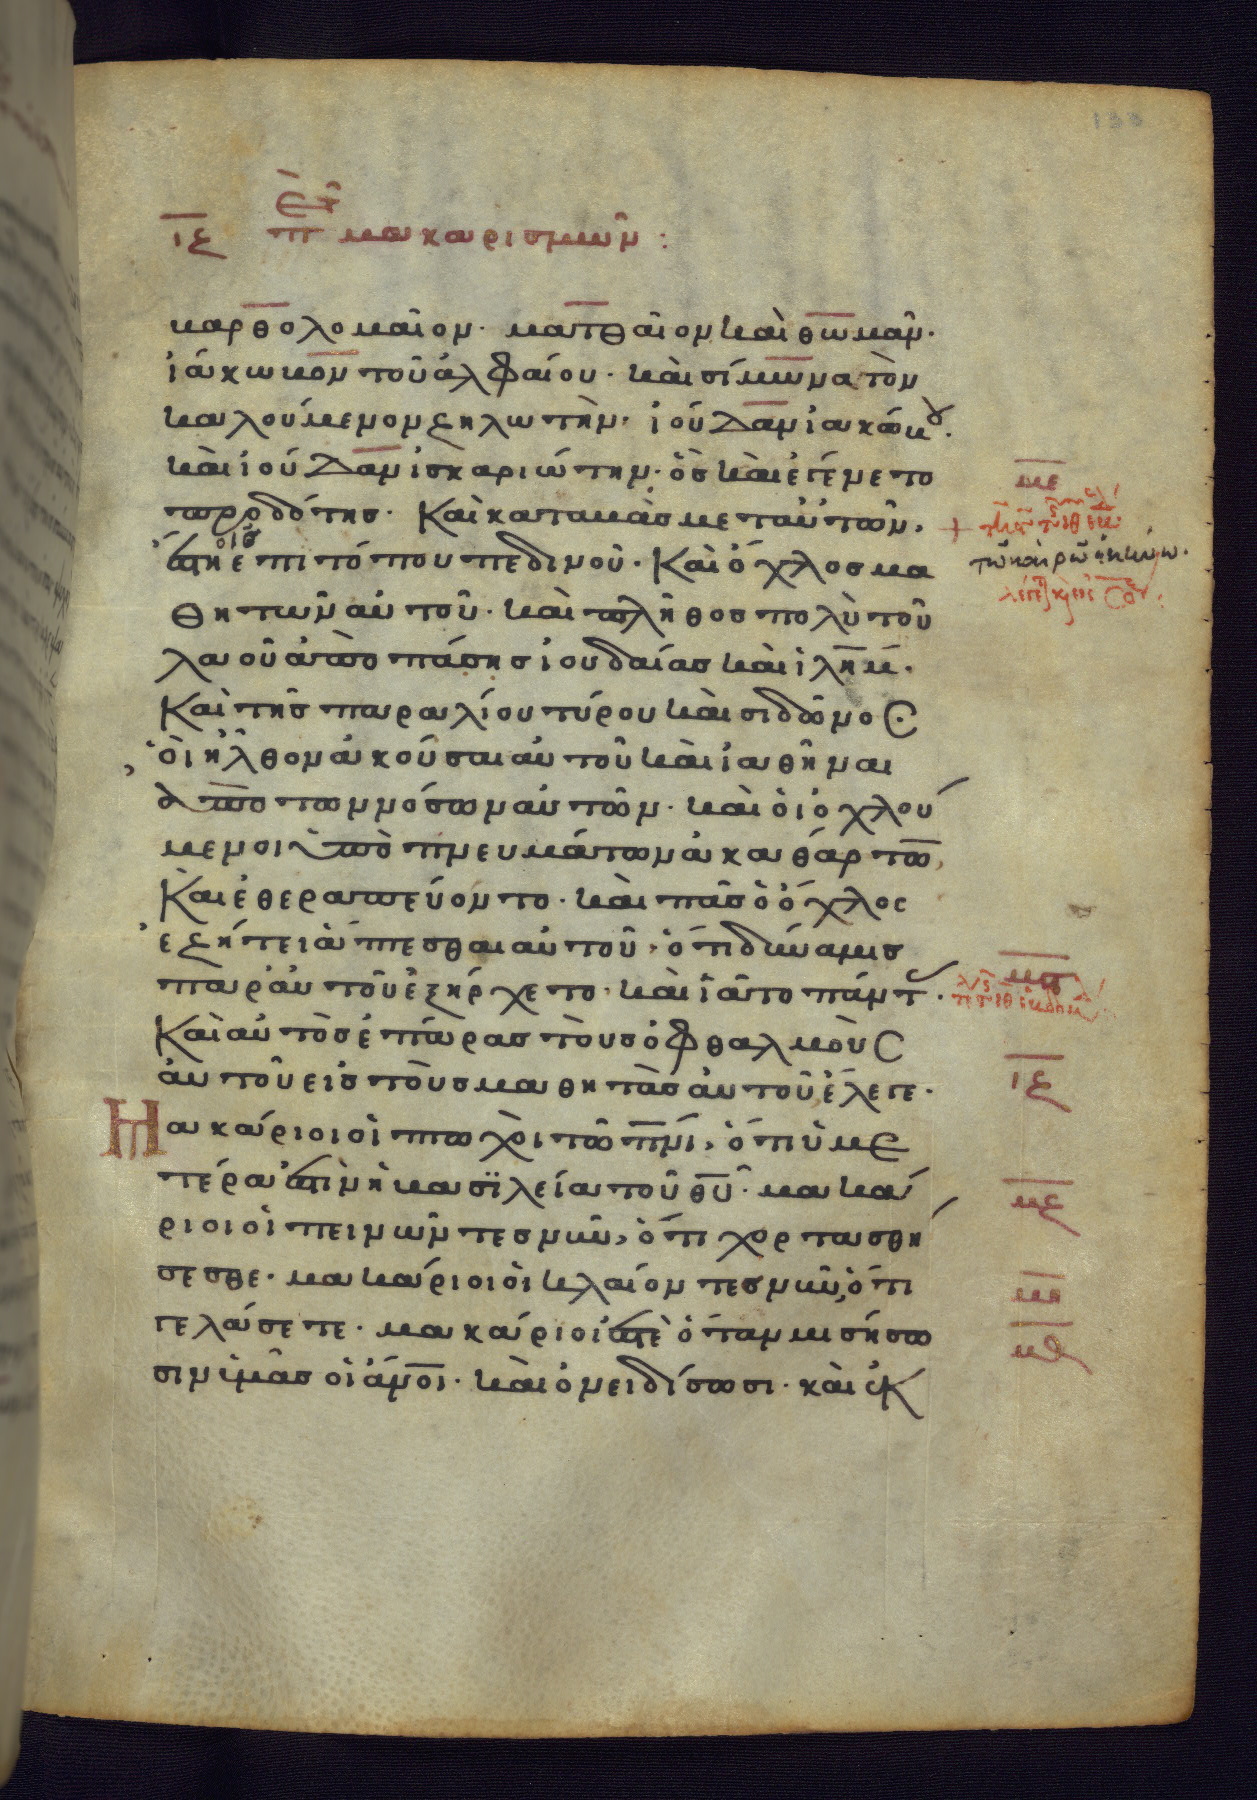 ιϛ π μακαρισμῶν :
βαρθολομαῖον. ματθαῖον καὶ θωμᾶν.
ἰάκωβον τοῦ ἀλφαίου. καὶ σίμωνα τὸν
καλούμενον ζηλωτὴν. ἰούδαν ἰακώβου.
καὶ ἰούδαν ἰσκαριώτην. ὃς καὶ ἐγένετο
προδότης. Καὶ καταβὰς μετ αὐτῶν.
ἔστη ἐπι τόπου πεδινοῦ. Καὶ ὄχλος μα
θητῶν αὐτοῦ. καὶ πλῆθος πολὺ τοῦ
λαοῦ ἀπὸ πάσης ἰουδαίας καὶ ἱλημ.
Καὶ τῆς παραλίου τύρου καὶ σιδῶνος.
ὃι ἦλθον ἀκοῦσαι αὐτοῦ καὶ ἰαθῆναι
ἀπὸ τῶν νόσων αὐτῶν. καὶ ὁι ὀχλού
μενοι ὑπὸ πνευμάτων ἀκαθάρτων,
Καὶ ἐθεραπεύοντο. καὶ πᾶς ὁ ὄχλος
ἐζήτει ἅπτεσθαι αὐτοῦ. ὅτι δύναμις
παρ αὐτοῦ ἐξήρχετο. καὶ ἰᾶτο πάντας.
Καὶ αὐτὸς ἐπάρας τοὺς ὀφθαλμοὺς
αὐτοῦ εἰς τοὺς μαθητὰς αὐτοῦ ἔλεγε.
Μακάριοι οἱ πτωχοὶ τῶ πνι, ὅτι ὑμε
τέρα ἐστὶν ἡ βασϊλεία τοῦ θυ. μακά
ριοι οἱ πεινῶντες νῦν, ὅτι χορτασθή
σεσθε. μακάριοι οἱ κλαίοντες νῦν, ὅτι
γελάσετε. μακάριοί ἐστε ὅταν μισήσω
σιν ὑμᾶς οἱ ἄνοι. καὶ ὀνειδίσωσι. καὶ ἐκ
με
τῶ καιρῶ ἐκείνω.
μϛ
ιϛ
μζ
μη
μθ